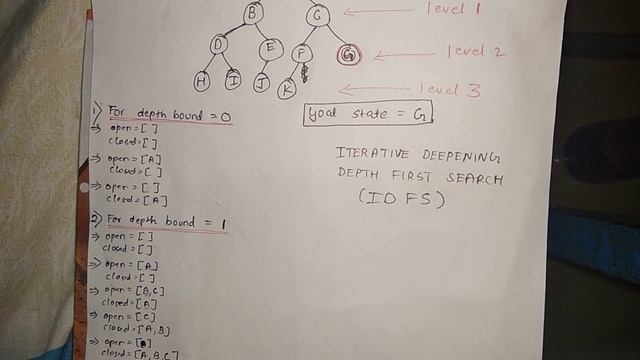 B
C
level 1
D
E
F
G
level 2
H
I
J
K
level 3
1) For depth bound = 0
goal state = G
⇒ open = [ ]
closed = [ ]
⇒ open = [A]
closed = [ ]
⇒ open = [ ]
closed = [A]
ITERATIVE DEEPENING
DEPTH FIRST SEARCH
(IDFS)
2) For depth bound = 1
⇒ open = [ ]
closed = [ ]
⇒ open = [A]
closed = [ ]
⇒ open = [B,C]
closed = [A]
⇒ open = [C]
closed = [A,B]
⇒ open = [ ]
closed = [A,B,C]